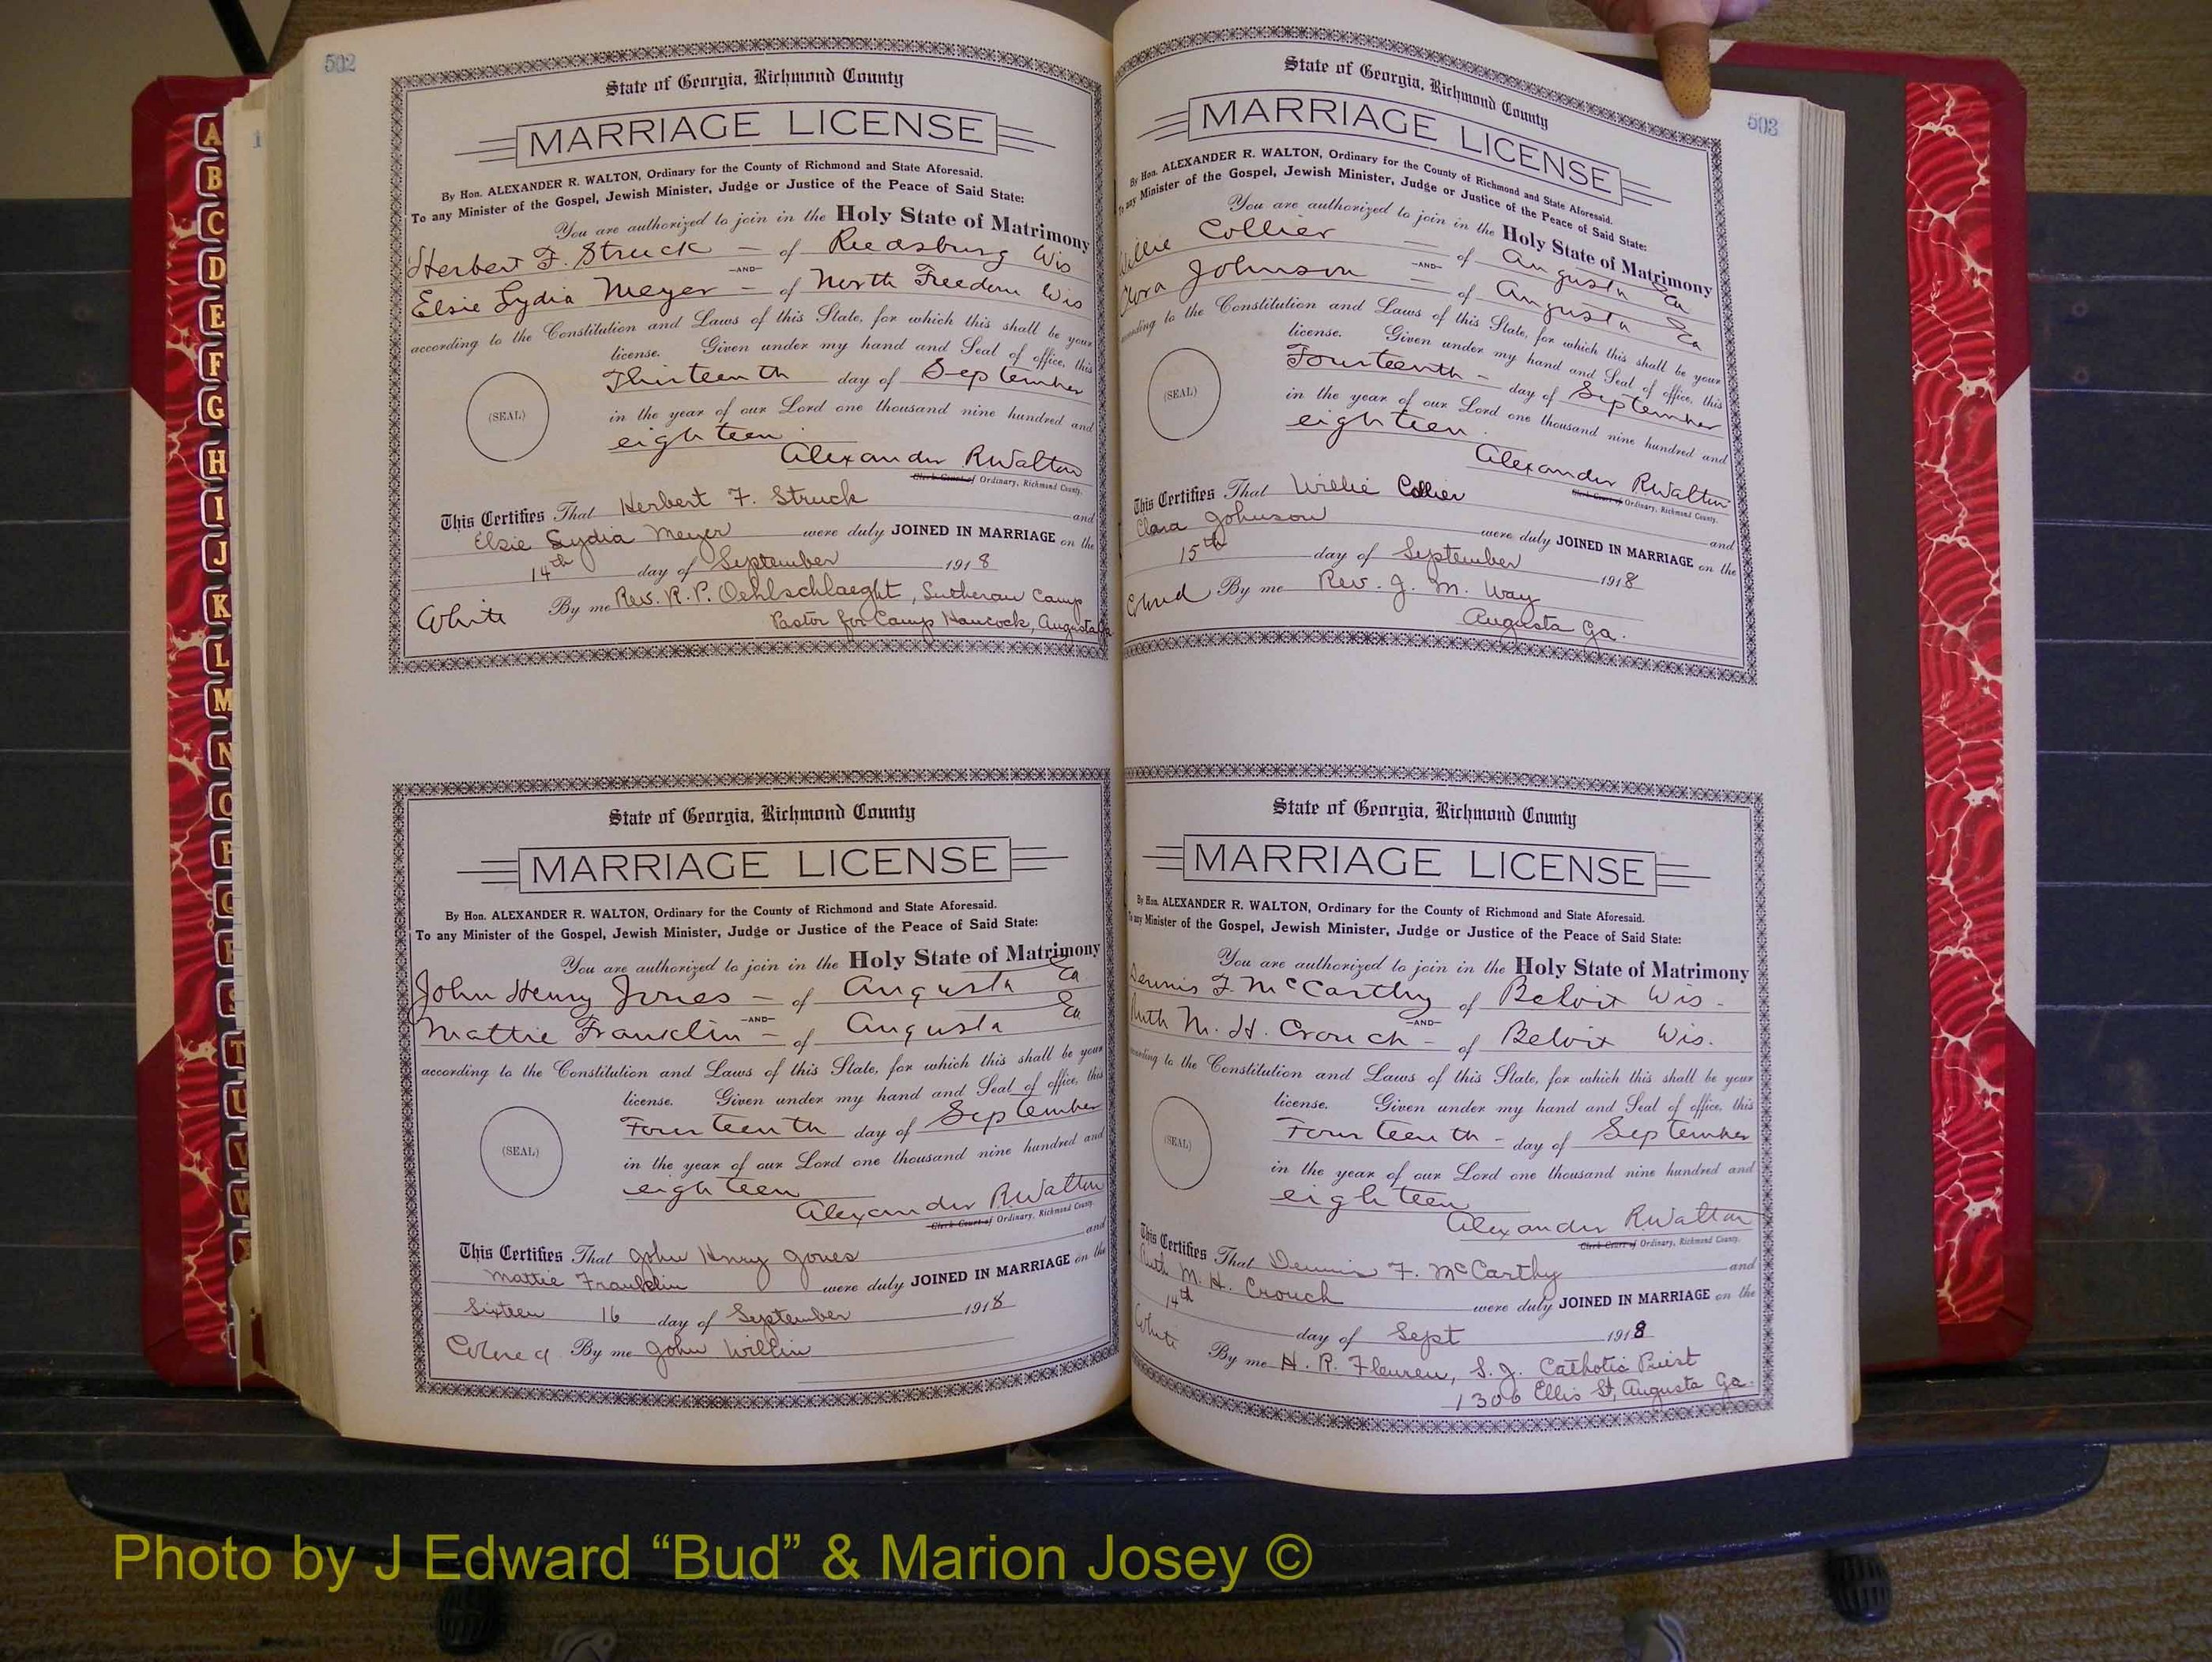 502
State of Georgia, Richmond County
MARRIAGE LICENSE
By Hon. ALEXANDER R. WALTON, Ordinary for the County of Richmond and State Aforesaid.
To any Minister of the Gospel, Jewish Minister, Judge or Justice of the Peace of Said State:
You are authorized to join in the Holy State of Matrimony
Herbert F. Struck — of Reedsburg Wis
—AND—
Elsie Lydia Meyer — of North Freedom Wis
according to the Constitution and Laws of this State, for which this shall be your
license. Given under my hand and Seal of office, this
Thirteenth day of September
(SEAL)
in the year of our Lord one thousand nine hundred and
eighteen.
Alexander R Walton
Clerk Court of Ordinary, Richmond County.
This Certifies That Herbert F. Struck and
Elsie Lydia Meyer were duly JOINED IN MARRIAGE on the
14th day of September 1918
White By me Rev. R. P. Oehlschlaeght, Lutheran Camp
Pastor for Camp Hancock, Augusta Ga.
State of Georgia, Richmond County
MARRIAGE LICENSE
By Hon. ALEXANDER R. WALTON, Ordinary for the County of Richmond and State Aforesaid.
To any Minister of the Gospel, Jewish Minister, Judge or Justice of the Peace of Said State:
You are authorized to join in the Holy State of Matrimony
John Henry Jones — of Augusta Ga
—AND—
Mattie Franklin — of Augusta Ga
according to the Constitution and Laws of this State, for which this shall be your
license. Given under my hand and Seal of office, this
Fourteenth day of September
(SEAL)
in the year of our Lord one thousand nine hundred and
eighteen
Alexander R Walton
Clerk Court of Ordinary, Richmond County.
This Certifies That John Henry Jones and
Mattie Franklin were duly JOINED IN MARRIAGE on the
Sixteen 16 day of September 1918
Colored By me John Willin
503
State of Georgia, Richmond County
MARRIAGE LICENSE
By Hon. ALEXANDER R. WALTON, Ordinary for the County of Richmond and State Aforesaid.
To any Minister of the Gospel, Jewish Minister, Judge or Justice of the Peace of Said State:
You are authorized to join in the Holy State of Matrimony
Willie Collier — of Augusta Ga
—AND—
Clora Johnson — of Augusta Ga
according to the Constitution and Laws of this State, for which this shall be your
license. Given under my hand and Seal of office, this
Fourteenth — day of September
(SEAL)
in the year of our Lord one thousand nine hundred and
eighteen.
Alexander R Walton
Clerk Court of Ordinary, Richmond County.
This Certifies That Willie Collier and
Clara Johnson were duly JOINED IN MARRIAGE on the
15th day of September 1918
Colored By me Rev. J. M. Way
Augusta Ga.
State of Georgia, Richmond County
MARRIAGE LICENSE
By Hon. ALEXANDER R. WALTON, Ordinary for the County of Richmond and State Aforesaid.
To any Minister of the Gospel, Jewish Minister, Judge or Justice of the Peace of Said State:
You are authorized to join in the Holy State of Matrimony
Dennis F. McCarthy of Beloit Wis —
—AND—
Ruth M. H. Crouch — of Beloit Wis.
according to the Constitution and Laws of this State, for which this shall be your
license. Given under my hand and Seal of office, this
Fourteenth — day of September
(SEAL)
in the year of our Lord one thousand nine hundred and
eighteen
Alexander R Walton
Clerk Court of Ordinary, Richmond County.
This Certifies That Dennis F. McCarthy and
Ruth M. H. Crouch were duly JOINED IN MARRIAGE on the
14th day of Sept 1918
White By me H. R. Fleuren, S.J. Catholic Priest
1306 Ellis St, Augusta Ga.
A
B
C
D
E
F
G
H
I
J
K
L
M
N
O
P
Q
R
S
T
U
V
W
Photo by J Edward “Bud” & Marion Josey ©